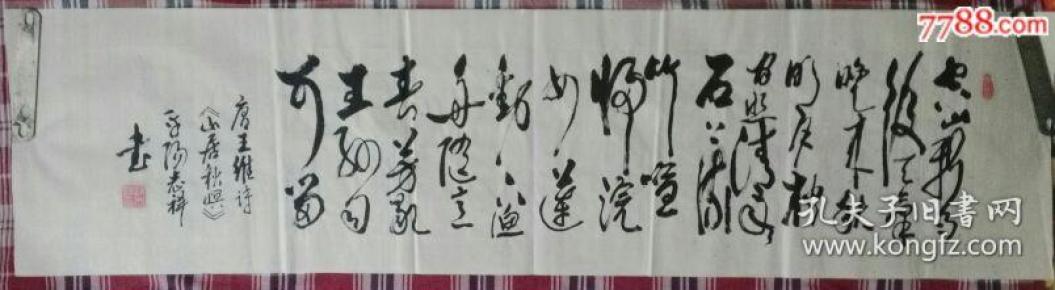 空山新雨
後天氣
晚来秋
明月松
间照清泉
石上流
竹喧
歸浣
女蓮
動下渔
舟随意
春芳歇
王孙自
可留
唐王維诗
《山居秋暝》
平阳志祥
书
7788.com
孔夫子旧书网
www.kongfz.com